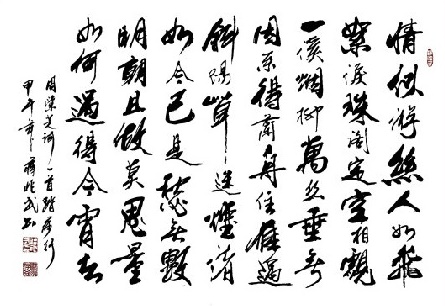 情似游絲人如飛
絮淚珠閣定空相覷
一溪烟柳萬絲垂無
因系得蘭舟住雁過
斜陽草迷煙渚
如今已是愁無數
明朝且做莫思量
如何過得今宵去
周紫芝詞一首踏莎行
甲午年